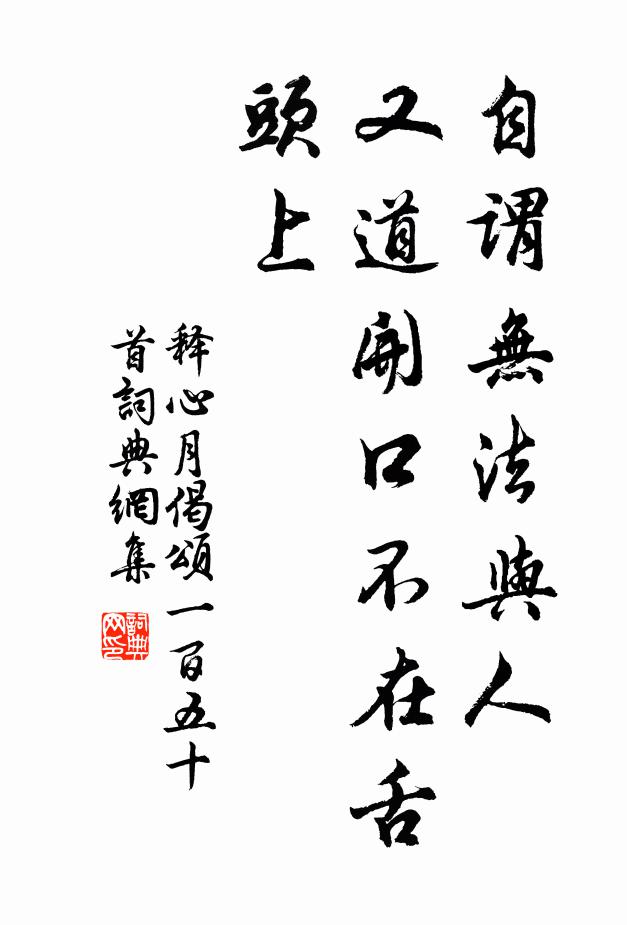 自謂無法與人
又道開口不在舌
頭上
释心月偈頌一百五十
首詞典網集
詞典
网印